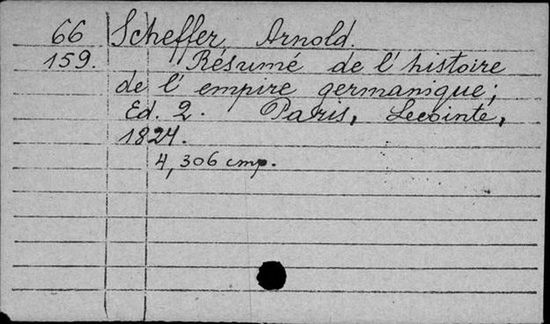 66 Scheffer, Arnold.
159. Résumé de l'histoire
de l'empire germanique;
Ed. 2. Paris, Lecointe,
1824.
4, 306 cmp.